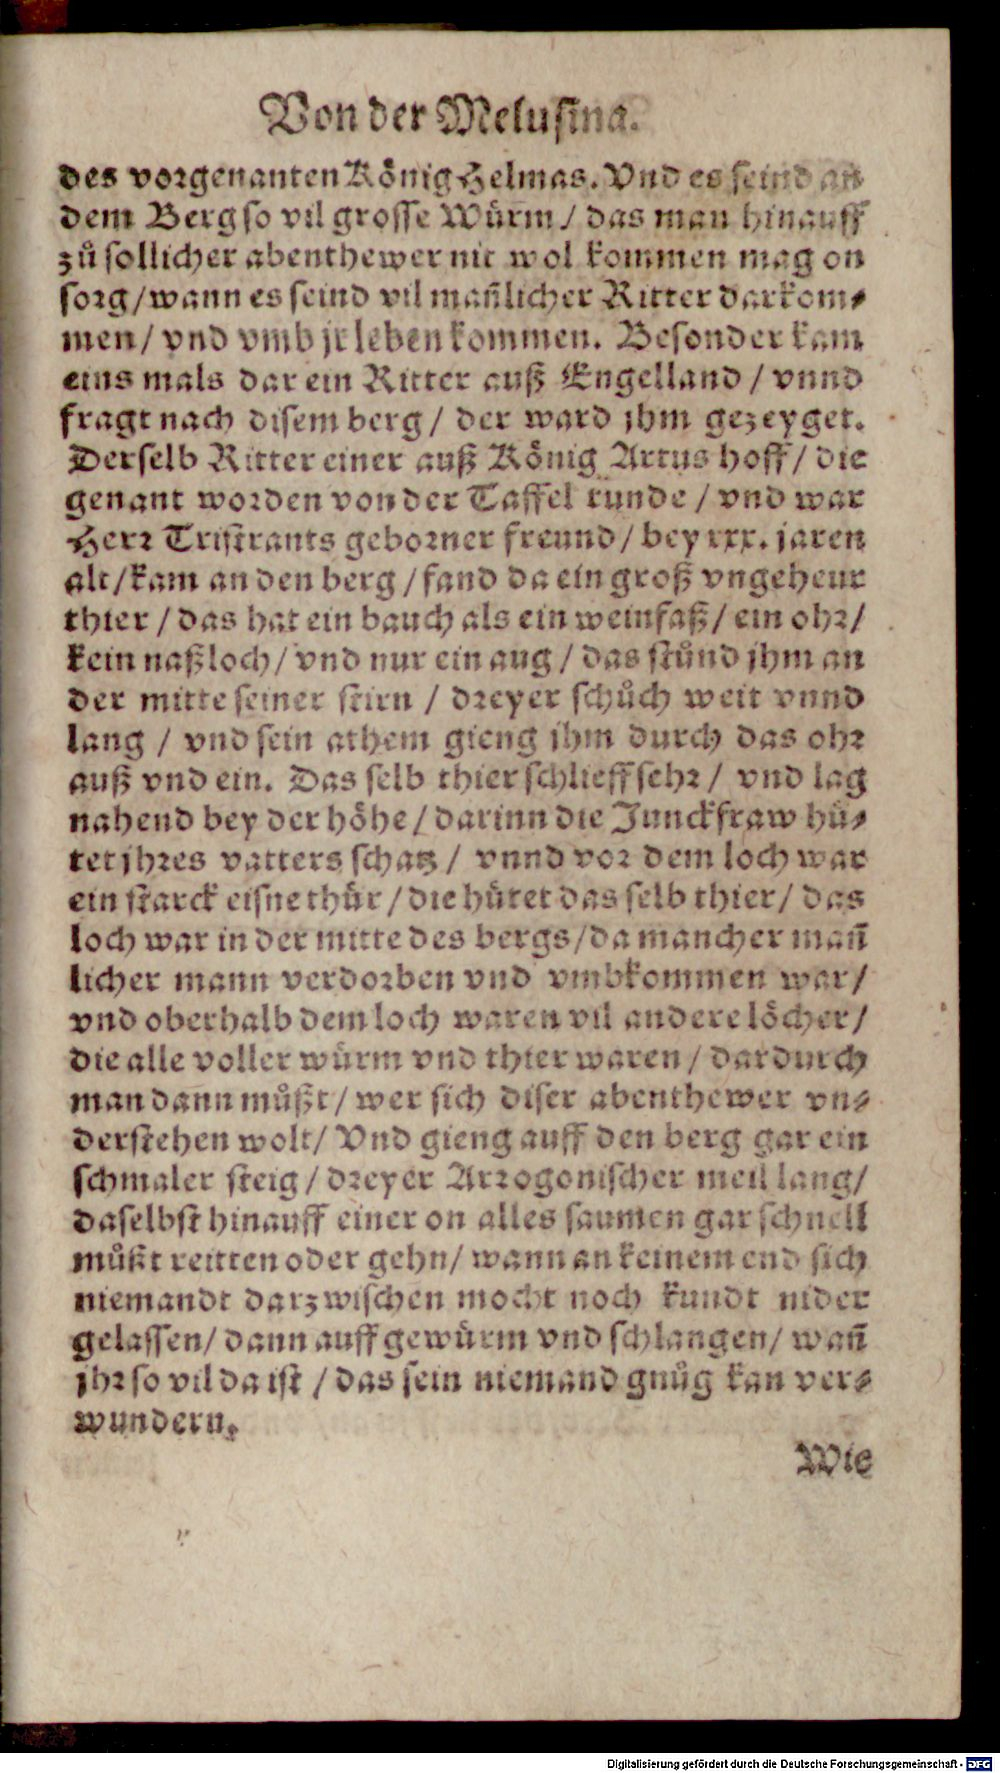 Von der Melusina.
des vorgenanten König Helmas. Vnd es seind an
dem Berg so vil grosse Würm / das man hinauff
zů sollicher abenthewer nit wol kommen mag on
sorg / wann es seind vil mañlicher Ritter darkom⸗
men / vnd vmb jr leben kommen. Besonder kam
eins mals dar ein Ritter auß Engelland / vnnd
fragt nach disem berg / der ward jhm gezeyget.
Derselb Ritter einer auß König Artus hoff / die
genant worden von der Taffel runde / vnd war
Herr Tristrants geborner freund / bey xxx. jaren
alt / kam an den berg / fand da ein groß vngeheur
thier / das hat ein bauch als ein weinfaß / ein ohr /
kein naßloch / vnd nur ein aug / das stůnd jhm an
der mitte seiner stirn / dreyer schůch weit vnnd
lang / vnd sein athem gieng jhm durch das ohr
auß vnd ein. Das selb thier schlieff sehr / vnd lag
nahend bey der höhe / darinn die Junckfraw hü⸗
tet jhres vatters schatz / vnnd vor dem loch war
ein starck eisne thür / die hütet das selb thier / das
loch war in der mitte des bergs / da mancher mañ
licher mann verdorben vnd vmbkommen war /
vnd oberhalb dem loch waren vil andere löcher /
die alle voller würm vnd thier waren / dardurch
man dann můßt / wer sich diser abenthewer vn⸗
derstehen wolt / Vnd gieng auff den berg gar ein
schmaler steig / dreyer Arrogonischer meil lang /
daselbst hinauff einer on alles saumen gar schnell
můßt reitten oder gehn / wann an keinem end sich
niemandt darzwischen mocht noch kundt nider
gelassen / dann auff gewürm vnd schlangen / wañ
jhr so vil da ist / das sein niemand gnůg kan ver⸗
wundern.
Wie
Digitalisierung gefördert durch die Deutsche Forschungsgemeinschaft - DFG